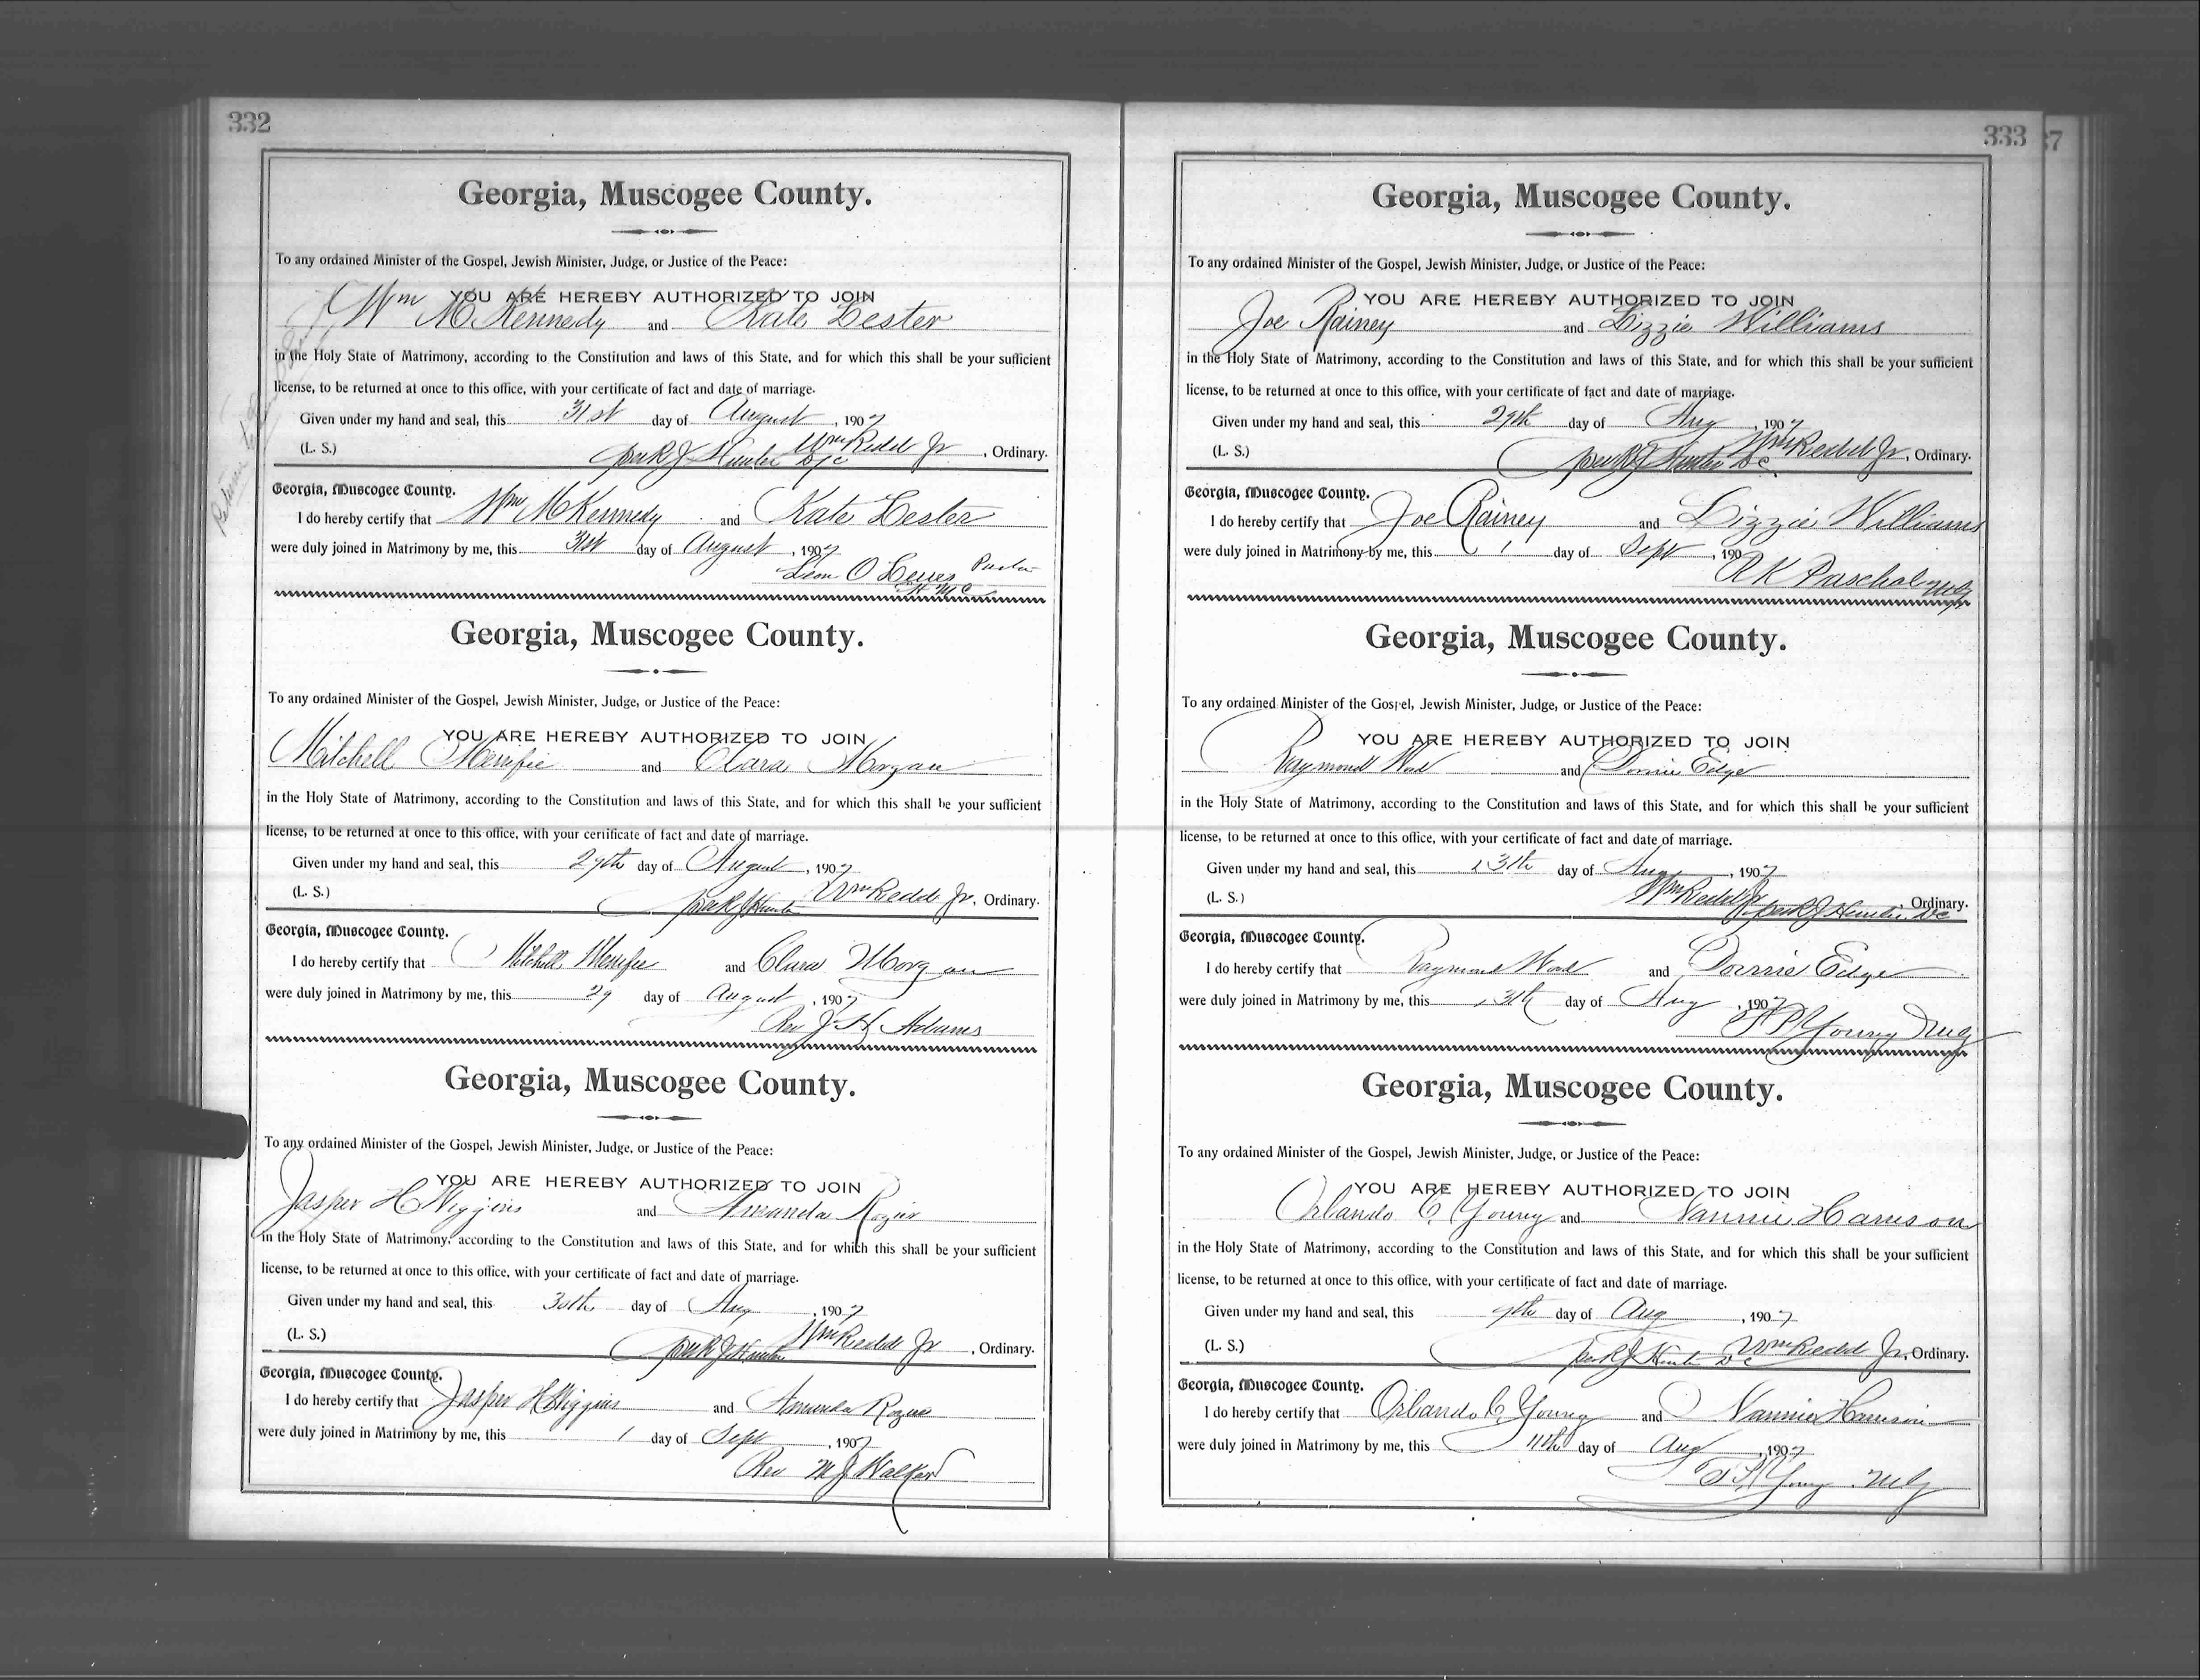 332
Georgia, Muscogee County.
To any ordained Minister of the Gospel, Jewish Minister, Judge, or Justice of the Peace:
YOU ARE HEREBY AUTHORIZED TO JOIN
Wm McKennedy and Kate Lester
in the Holy State of Matrimony, according to the Constitution and laws of this State, and for which this shall be your sufficient
license, to be returned at once to this office, with your certificate of fact and date of marriage.
Given under my hand and seal, this 31st day of August, 1907
(L. S.) per R J Hunter D/c Wm Redd Jr, Ordinary.
Georgia, Muscogee County.
I do hereby certify that Wm McKennedy and Kate Lester
were duly joined in Matrimony by me, this 31st day of August, 1907
Leon O Pastor
Georgia, Muscogee County.
To any ordained Minister of the Gospel, Jewish Minister, Judge, or Justice of the Peace:
YOU ARE HEREBY AUTHORIZED TO JOIN
Mitchell and Clara Morgan
in the Holy State of Matrimony, according to the Constitution and laws of this State, and for which this shall be your sufficient
license, to be returned at once to this office, with your certificate of fact and date of marriage.
Given under my hand and seal, this day of August, 1907
(L. S.) per R J Hunter Wm Redd Jr, Ordinary.
Georgia, Muscogee County.
I do hereby certify that Mitchell and Clara Morgan
were duly joined in Matrimony by me, this 29 day of August, 1907
Rev J H Adams
Georgia, Muscogee County.
To any ordained Minister of the Gospel, Jewish Minister, Judge, or Justice of the Peace:
YOU ARE HEREBY AUTHORIZED TO JOIN
Jasper H Wiggins and Amanda Rozier
in the Holy State of Matrimony, according to the Constitution and laws of this State, and for which this shall be your sufficient
license, to be returned at once to this office, with your certificate of fact and date of marriage.
Given under my hand and seal, this 30th day of Aug, 1907
(L. S.) per R J Hunter Wm Redd Jr, Ordinary.
Georgia, Muscogee County.
I do hereby certify that Jasper H Wiggins and Amanda
were duly joined in Matrimony by me, this 1 day of Sept, 1907
Rev M J Walker
333
37
Georgia, Muscogee County.
To any ordained Minister of the Gospel, Jewish Minister, Judge, or Justice of the Peace:
YOU ARE HEREBY AUTHORIZED TO JOIN
Joe Rainey and Lizzie Williams
in the Holy State of Matrimony, according to the Constitution and laws of this State, and for which this shall be your sufficient
license, to be returned at once to this office, with your certificate of fact and date of marriage.
Given under my hand and seal, this day of Aug, 1907
(L. S.) per R J Hunter D c Wm Redd Jr, Ordinary.
Georgia, Muscogee County.
I do hereby certify that Joe Rainey and Lizzie Williams
were duly joined in Matrimony by me, this 1 day of Sept, 190
R K Paschal M G
Georgia, Muscogee County.
To any ordained Minister of the Gospel, Jewish Minister, Judge, or Justice of the Peace:
YOU ARE HEREBY AUTHORIZED TO JOIN
Raymond and Donnie Edge
in the Holy State of Matrimony, according to the Constitution and laws of this State, and for which this shall be your sufficient
license, to be returned at once to this office, with your certificate of fact and date of marriage.
Given under my hand and seal, this 13th day of Aug, 1907
(L. S.) Wm Redd Jr per R J Hunter Dc Ordinary.
Georgia, Muscogee County.
I do hereby certify that Raymond and Donnie Edge
were duly joined in Matrimony by me, this 13th day of Aug, 1907
Young M G
Georgia, Muscogee County.
To any ordained Minister of the Gospel, Jewish Minister, Judge, or Justice of the Peace:
YOU ARE HEREBY AUTHORIZED TO JOIN
Orlando C Young and Nannie Harrison
in the Holy State of Matrimony, according to the Constitution and laws of this State, and for which this shall be your sufficient
license, to be returned at once to this office, with your certificate of fact and date of marriage.
Given under my hand and seal, this day of Aug, 1907
(L. S.) per R J Hunter D c Wm Redd Jr, Ordinary.
Georgia, Muscogee County.
I do hereby certify that Orlando C Young and Nannie Harrison
were duly joined in Matrimony by me, this 11th day of Aug, 1907
Young M G